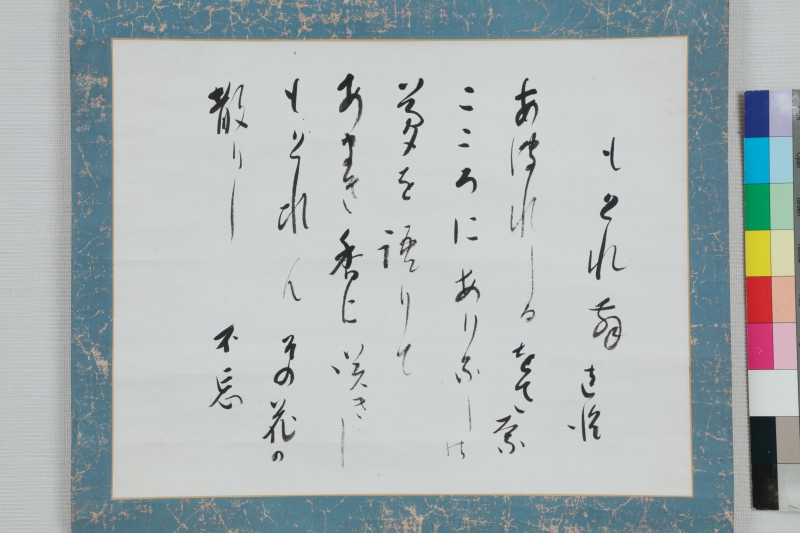 もくれ舞
あ波れしる
こころにありなしの
夢を語りて
あまき香に咲きし
もくれん その花の
散りし 不忘